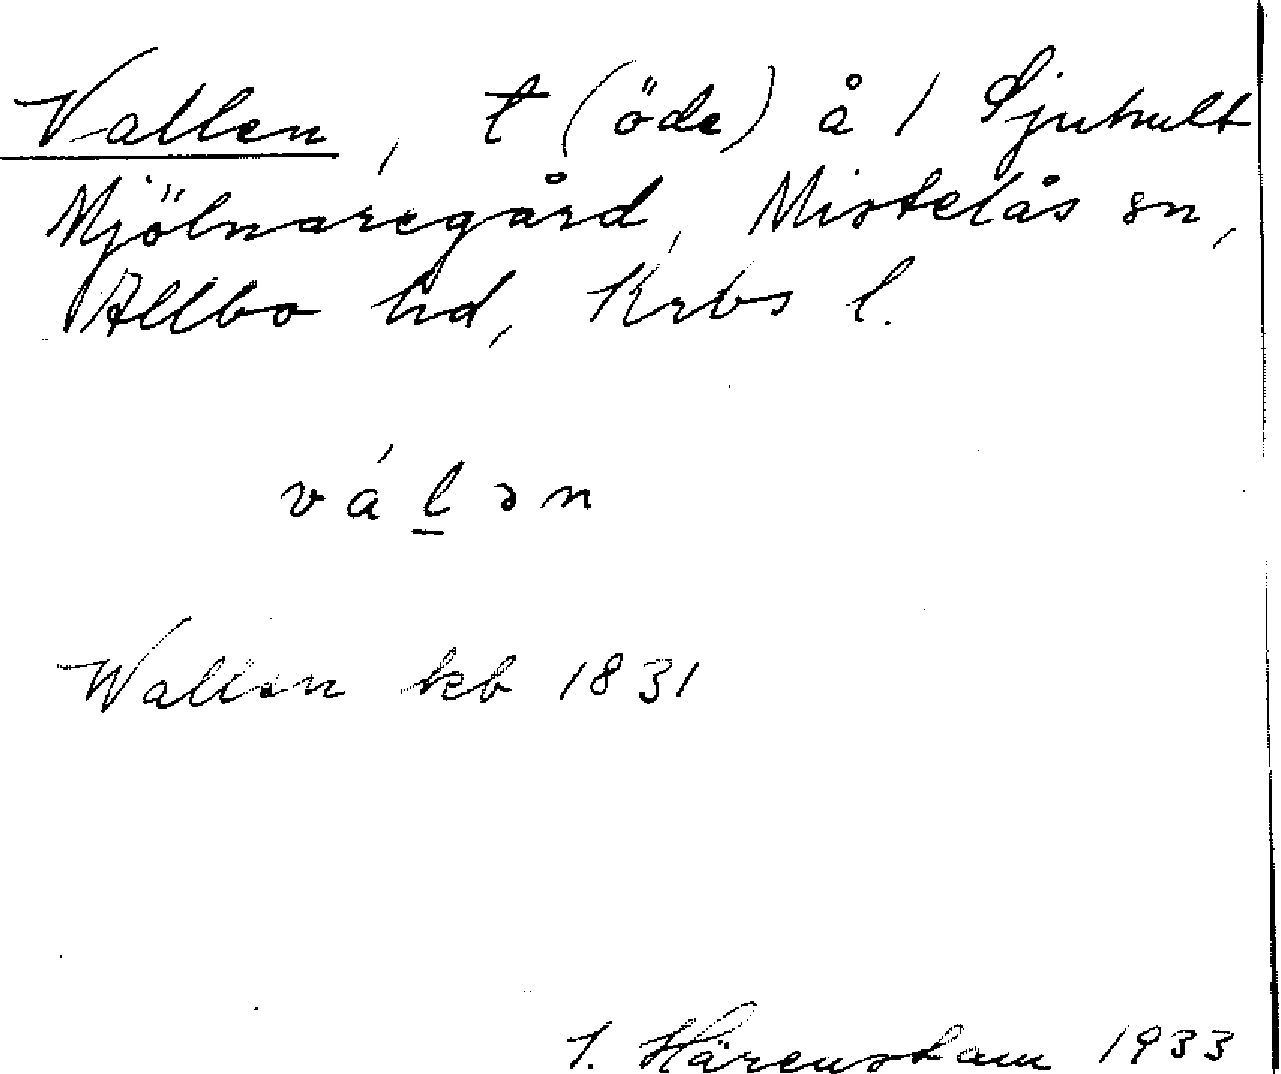 Vallen, t (öde) å 1 Sjuhult
Mjölnaregård, Mistelås sn,
Allbo hd, Krbs l.
vál̲ən
Wallen kb 1831
I. Härenstam 1933